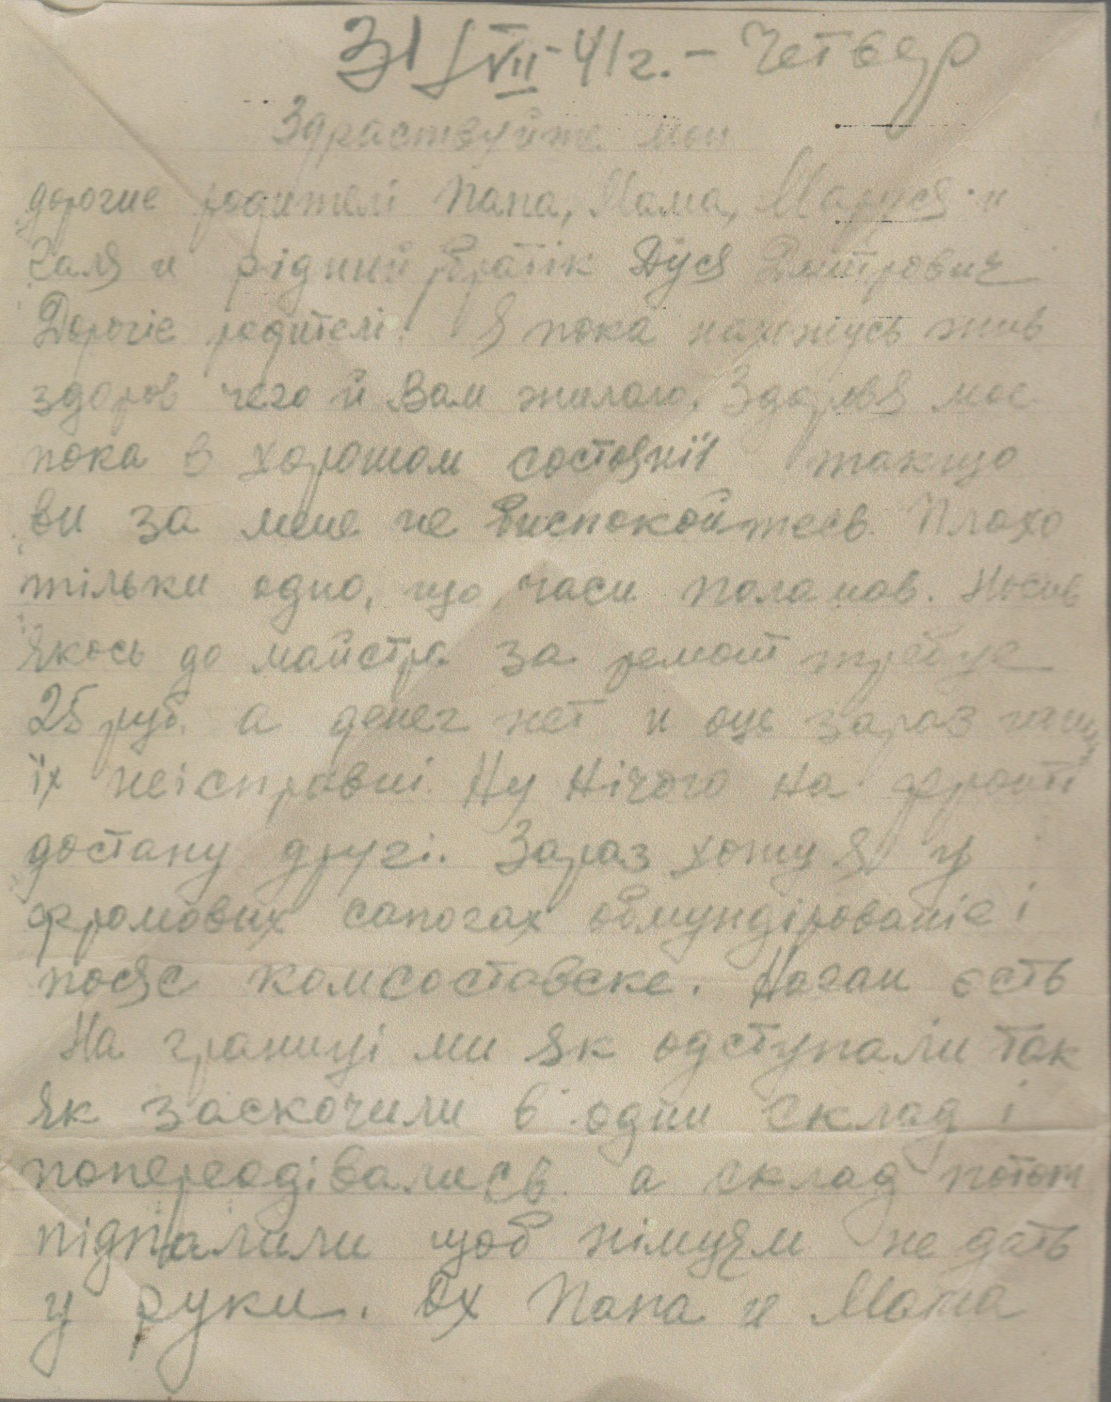 31/VII-41г. – Четвер
Здраствуйте мои
дорогие родителі Папа, Мама, Маруся и
Галя и рідний братік Дуся Дмитрович
Дорогіе родителі. Я пока нахожусь жив
здоров чего й Вам жилаю. Здоровя моє
пока в хорошом состоянії такщо
ви за мене не биспокойтесь. Плохо
тільки одно, що часи поламав. Носив
якось до майстра за ремонт требує
25 руб. а денег нет и оце зараз ношу
їх неісправні. Ну нічого на фронті
достану другі. Зараз хожу я у
хромових сапогах обмундірованіе і
пояс комсоставске. Наган єсть
На границі ми як одступали так
як заскочили в один склад і
попереодівались а склад потом
підпалили щоб німцям не дать
у руки. Ох Папа и Мама